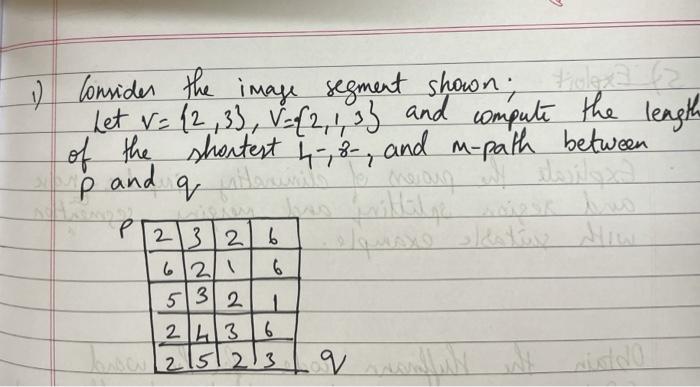 1) Consider the image segment shown;
Let V= {2,3}, V={2,1,3} and compute the length
of the shortest 4-, 8-, and m-path between
p and q
P 2 3 2 6
6 2 1 6
5 3 2 1
2 4 3 6
2 5 2 3 q